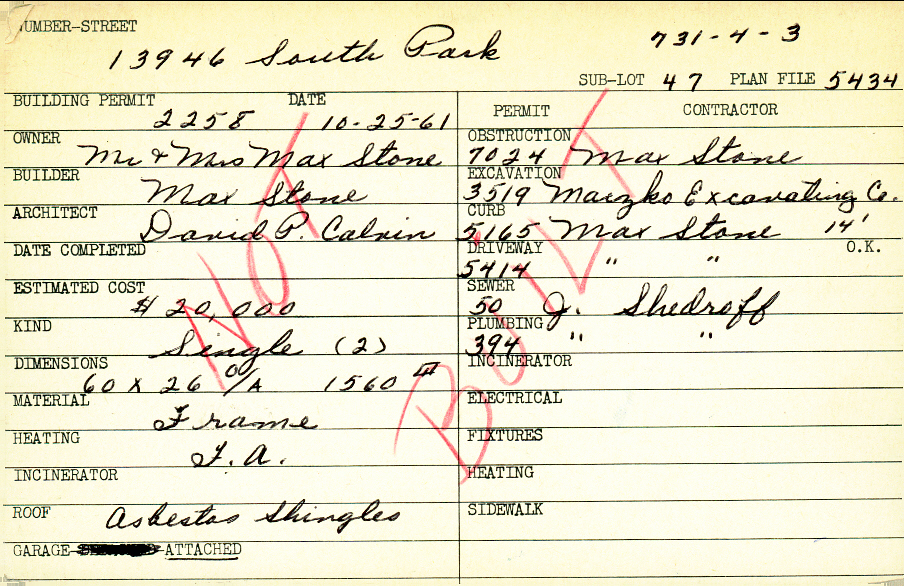 NUMBER-STREET
13946 South Park 731-4-3
SUB-LOT 47 PLAN FILE 5434
BUILDING PERMIT DATE
2258 10-25-61
OWNER
Mr & Mrs Max Stone
BUILDER
Max Stone
ARCHITECT
David P. Calvin
DATE COMPLETED
ESTIMATED COST
$ 20,000
KIND
Single (2)
DIMENSIONS
60 x 26 O/A 1560
MATERIAL
Frame
HEATING
F.A.
INCINERATOR
ROOF
Asbestos Shingles
GARAGE- -ATTACHED
PERMIT CONTRACTOR
OBSTRUCTION
7024 Max Stone
EXCAVATION
3519 Maczko Excavating Co.
CURB
5165 Max Stone 14'
DRIVEWAY O.K.
5414 " "
SEWER
50 J. Shedroff
PLUMBING
394 " "
INCINERATOR
ELECTRICAL
FIXTURES
HEATING
SIDEWALK
NOT
BUILT